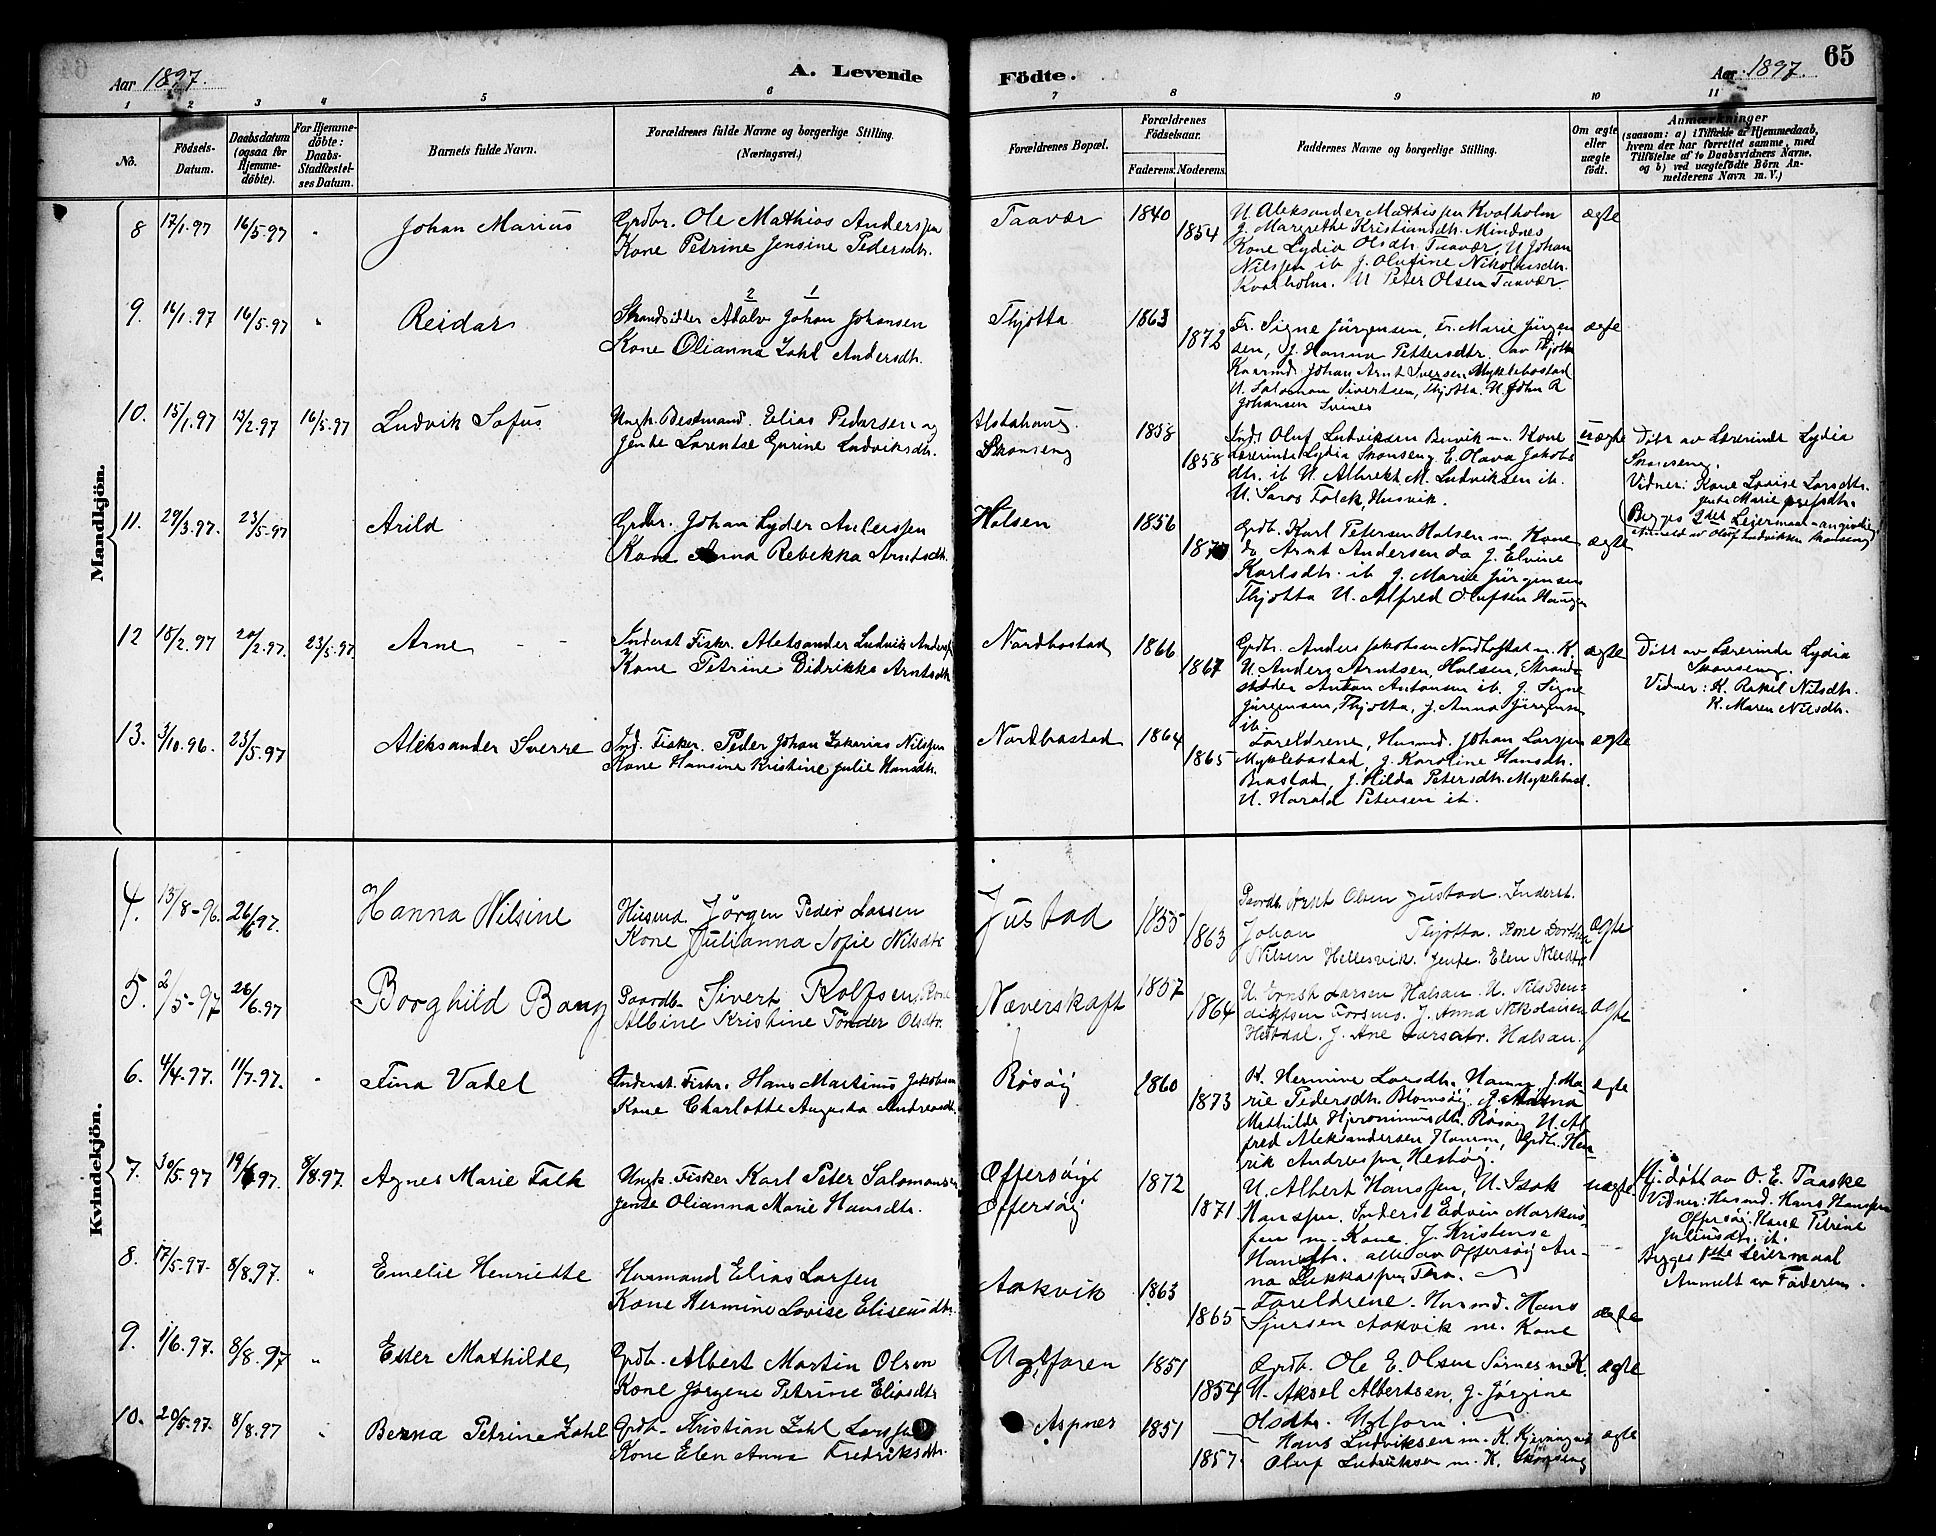 Aar 1897. A. Levende Födte. Aar 1897. 65
1 2 3 4 5 6 7 8 9 10 11
No.
Födsels-Datum.
Daabsdatum (ogsaa for Hjemme-döbte).
For Hjemme-döbte: Daabs-Stadfæstel-ses Datum.
Barnets fulde Navn.
Forældrenes fulde Navne og borgerlige Stilling. (Næringsvei.)
Forældrenes Bopæl.
Forældrenes Födselsaar.
Faderens. Moderens.
Faddernes Navne og borgerlige Stilling.
Om ægte eller uægte födt.
Anmærkninger
(saasom: a) i Tilfælde af Hjemmedaab,
hvem der har forrettet samme, med
Tilföielse af to Daabsvidners Navne,
og b) ved uægtefödte Börn An-
melderens Navn m. V.)
Mandkjön.
8 17/1.97 16/5.97 Johan Marius
Grdbr. Ole Mathias Anderssen
Kone Petrine Jensine Pedersdtr.
Taavær 1840 1854
U. Aleksander Mathissen Kvalholm
J. Margrethe Kristiansdtr. Mindnes
Kone Lydia Olsdtr. Taavær, U. Johan
Nilssen ib. J. Olufine Nikolaisdtr.
Kvalholm. U Peter Olsen Taavær.
ægte
9. 14/1.97 16/5.97 Reidar
2 1
Strandsidder Adolv Johan Johansen
Kone Olianna Zahl Andersdtr.
Thjøtta 1863 1872
Fr. Signe Jürgensen, Fr. Marie Jürgen
sen, J. Hanna Pettersdtr. av Thjøtta
Johan Arnt Iversen Myklebostad
U. Salomon Sivertsen, Thjøtta. U. John A
Johansen Svines
ægte
10. 15/1.97 13/2.97 16/5.97 Ludvik Sofus
Ungk. Bestmand. Elias Pedersen og
Jente Lorentse Gurine Ludviksdtr.
Alstahaug
Skonseng
1858 1858
Inds Oluf Ludviksen Buvik m. Kone
Lærerinde Lydia Skonseng E. Olava Jakobs
dtr. ib U. Albrekt M. Ludviksen ib.
U. Falck, Husvik.
uægte
Döbt av Lærerinde Lydia
Skonseng.
Vidner: Kone Lovise Larsdtr.
Jente Marie
Begges 2det Leiermaal angivelig
Anmeld av Oluf Ludviksen Skonseng
11. 29/3.97. 23/5.97 Arild
Grdbr. Johan Lyder Anderssen
Kone Anna Rebekka Arntsdtr.
Halsen 1856
Grdb. Karl Petersen Halsen m. Kone
do Arnt Andersen do J. Elvine
Karlsdtr. ib J. Marie Jürgensen
Thjøtta U. Alfred Olufsen Haugen
ægte
12 18/2.97 20/2.97. 23/5.97. Arne
Inderst Fiskr. Aleksander Ludvik Anders
Kone Petrine Didrikke Arntsdtr.
Nordbostad 1866 1867
Grdbr. Anders Jakobsen Nordbostad m. K.
U. Anders Arntsen, Halsen, Strand-
sidder Anton Antonsen ib. J. Signe
Jürgensen, Thjøtta, J. Anna Jürgensen
ib.
ægte
Döbt av Lærerinde Lydia
Skonseng.
Vidner: K. Rakel Nilsdtr.
K. Maren Nilsdtr.
13. 3/10.96. 23/5.97 Aleksander Sverre
Ind. Fisker. Peder Johan Zakarias Nilssen
Kone Hansine Kristine Julie Hansdtr.
Nordbostad 1864 1865
Foreldrene, Husmd. Johan Larssen
Myklebostad, J. Karoline Hansdtr.
Brastad, J. Hilda Petersdtr. Myklebost.
U. Harald Petersen ib.
ægte
Kvindekjön.
4. 13/8-96. 26/6 97. Hanna Nilsine
Husmd. Jørgen Peder Lassen
Kone Julianna Sofie Nilsdtr
Justad 1855 1863
Gaardb. Arnt Olsen Justad. Inderst.
Johan Thjøtta. Kone Dorthea
Nilsen Hellesvik. Jente. Elen Nilsdtr
ægte
5. 2/5-97 26/6.97 Borghild Bang
Gaardb. Sivert Rolfsen, Kone
Albine Kristine Tønder Olsdtr.
Næverskaft 1857 1864
U. Ernst Larsen Halsan. U. Nils Ben-
diktsen Forsnes. J. Anna Nikolaisen
Hestdal. J. Ane Larsdtr. Halsan.
ægte
6. 4/4-97. 11/7.97. Fina Vadel
Inderst. Fiskr. Hans Martinus Jakobsen
Kone Charlotte Augusta Andreasdtr.
Røsøig 1860 1873
K. Hermine Larsdtr. Hamn, J. Ma-
rie Pedersdtr. Blomsøig, J.
Mathilde Hjeronimusdtr. Røsøig U. Al
fred Aleksandersen Hamn, Grdb. Hen-
rik Andreassen, Hestøig.
ægte
7. 30/5.97 8/8.97. Agnes Marie Falk
Ungk. Fisker Karl Peter Salomonsen
Jente Olianna Marie Hansdtr.
Offersøig
Offersøig
1872 1871
U. Albert Hanssen, U. Isak
Hanssen. Inderst Edvin Markus-
sen m. Kone. J. Kristense
Hansdtr. alle av Offersøig An-
na Thro.
uægte
Hj. døbt av O. E. Taaske
Vidner: Husmd. Hans Hanssen
Offersøig. Kone Petrine
Juliusdtr. ib.
Begges 1ste Leiermaal
Anmeldt av Faderen.
8. 17/5.97. 8/8.97. Emelie Henriette
Husmand Elias Larsen
Kone Hermine Lovise Eliseusdtr.
Aakvik 1863 1865
Foreldrene. Husmd. Hans
Sjursen Aakvik m. Kone
ægte
9. 1/6.97. 8/8.97 Ester Mathilde
Grdb. Albert Martin Olsen
Kone Jørgene Petrine Eliasdtr
Ugtforen 1851 1854
Grdb. Ole E. Olsen Sørnes m. K.
U. Aksel Albertsen, J. Jørgine
Olsdtr. Ugtforn.
ægte
10. 20/5.97. 8/8.97 Berna Petrine Zahl
Grdb. Kristian Zahl Larssen
Kone Elen Anna Fredriksdtr.
Aspnes 1851 1857.
Hans Ludviksen m. K.
Oluf Ludviksen m. K. Skonseng
ægte